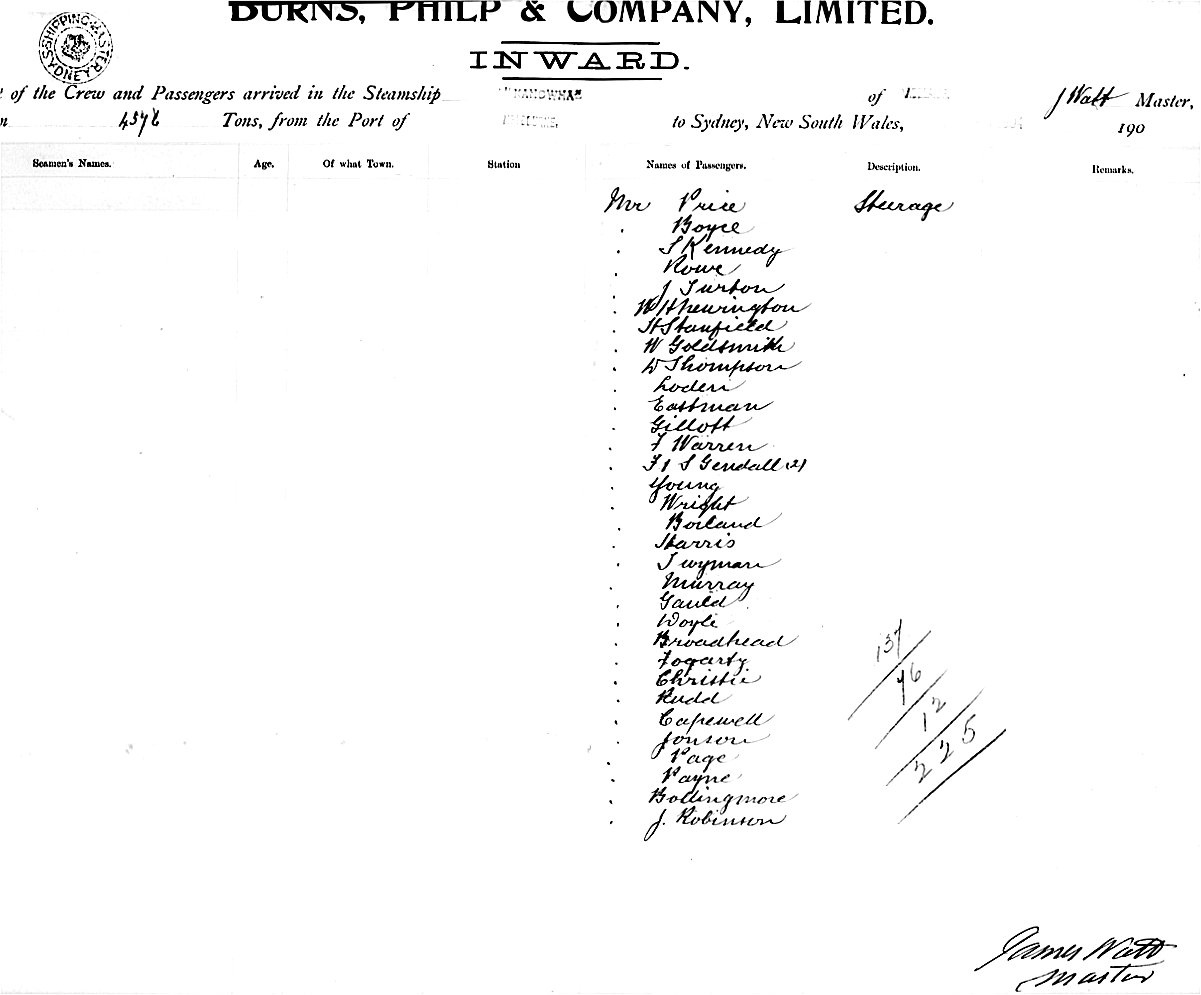 BURNS, PHILP & COMPANY, LIMITED.
INWARD.
SHIPPING MASTER SYDNEY
of the Crew and Passengers arrived in the Steamship of J Watt Master,
Tons, from the Port of to Sydney, New South Wales, 190
Seamen's Names. Age. Of what Town. Station Names of Passengers. Description. Remarks.
Mr Price Steerage
. Boyce
. S Kennedy
. Rowe
. J Turton
. W H Hewington
. H Stanfield
. W Goldsmith
. D Thompson
. Loden
. Eastman
. Gillott
. F Warren
. F & S Gendall (2)
. Young
. Wright
. Borland
. Harris
. Twyman
. Murray
. Gauld
. Doyle
. Broadhead
. Fogarty
. Christie
. Rudd
. Capewell
. Jonson
. Page
. Payne
. Bollingmore
. J. Robinson
137
76
12
225
James Watt
Master